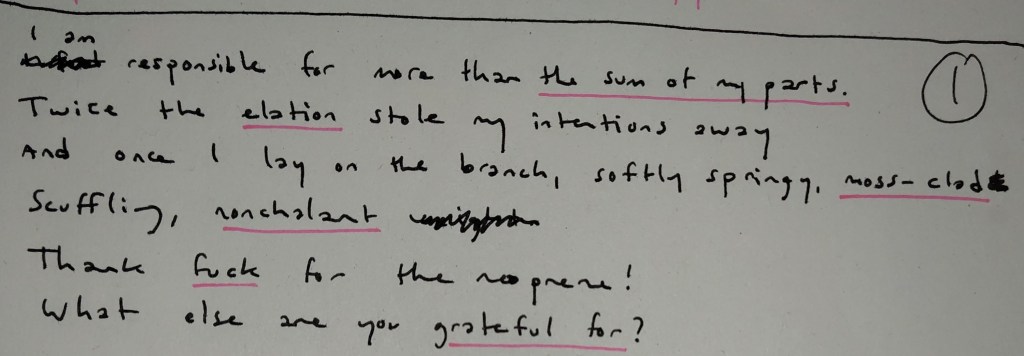 I am
responsible for more than the sum of my parts.
①
Twice the elation stole my intentions away
And once I lay on the branch, softly springy, moss-clad
Scuffling, nonchalant
Thank fuck for the neoprene!
What else are you grateful for?